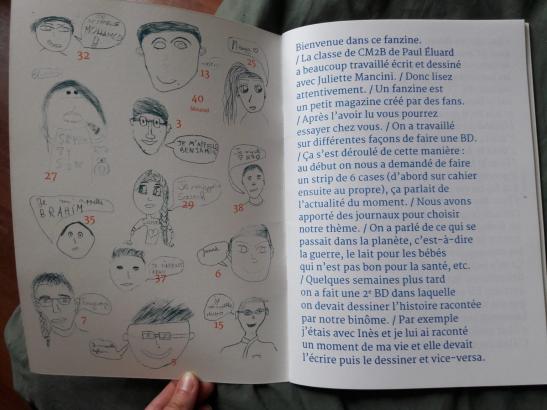 32
JE M'APPELLE
MOHAMED
13
40
25
3
JE M'APPELLE
BENJAMIN
27
29
38
35
BRAHIM
37
6
7
15
5
Bienvenue dans ce fanzine.
/ La classe de CM2B de Paul Éluard
a beaucoup travaillé écrit et dessiné
avec Juliette Mancini. / Donc lisez
attentivement. / Un fanzine est
un petit magazine créé par des fans.
/ Après l'avoir lu vous pourrez
essayer chez vous. / On a travaillé
sur différentes façons de faire une BD.
/ Ça s'est déroulé de cette manière :
au début on nous a demandé de faire
un strip de 6 cases (d'abord sur cahier
ensuite au propre), ça parlait de
l'actualité du moment. / Nous avons
apporté des journaux pour choisir
notre thème. / On a parlé de ce qui se
passait dans la planète, c'est-à-dire
la guerre, le lait pour les bébés
qui n'est pas bon pour la santé, etc.
/ Quelques semaines plus tard
on a fait une 2e BD dans laquelle
on devait dessiner l'histoire racontée
par notre binôme. / Par exemple
j'étais avec Inès et je lui ai raconté
un moment de ma vie et elle devait
l'écrire puis le dessiner et vice-versa.